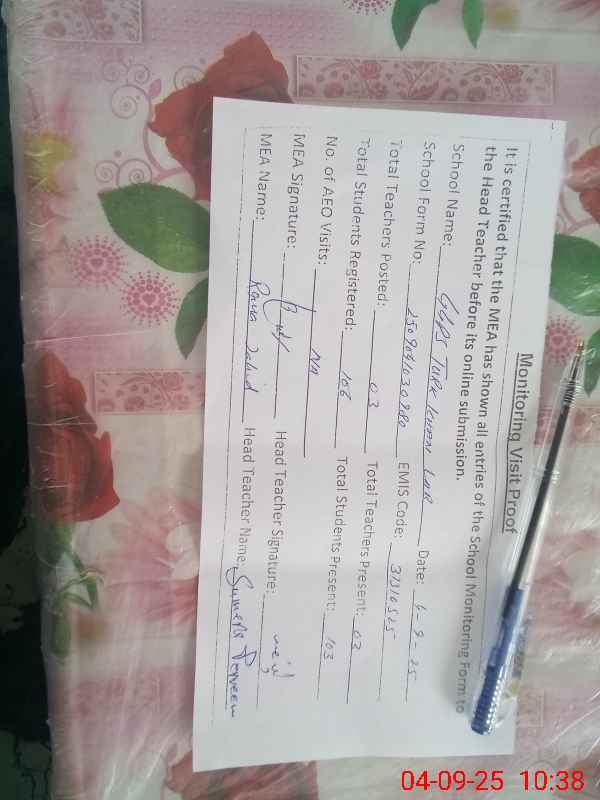 Monitoring Visit Proof
It is certified that the MEA has shown all entries of the School Monitoring Form to
the Head Teacher before its online submission.
School Name: Date: 4-9-25
School Form No: EMIS Code: 31310525
Total Teachers Posted: 03 Total Teachers Present: 03
Total Students Registered: 106 Total Students Present: 103
No. of AEO Visits: Nil
MEA Signature: Head Teacher Signature:
MEA Name: Head Teacher Name: Sumera Perveen
04-09-25 10:38